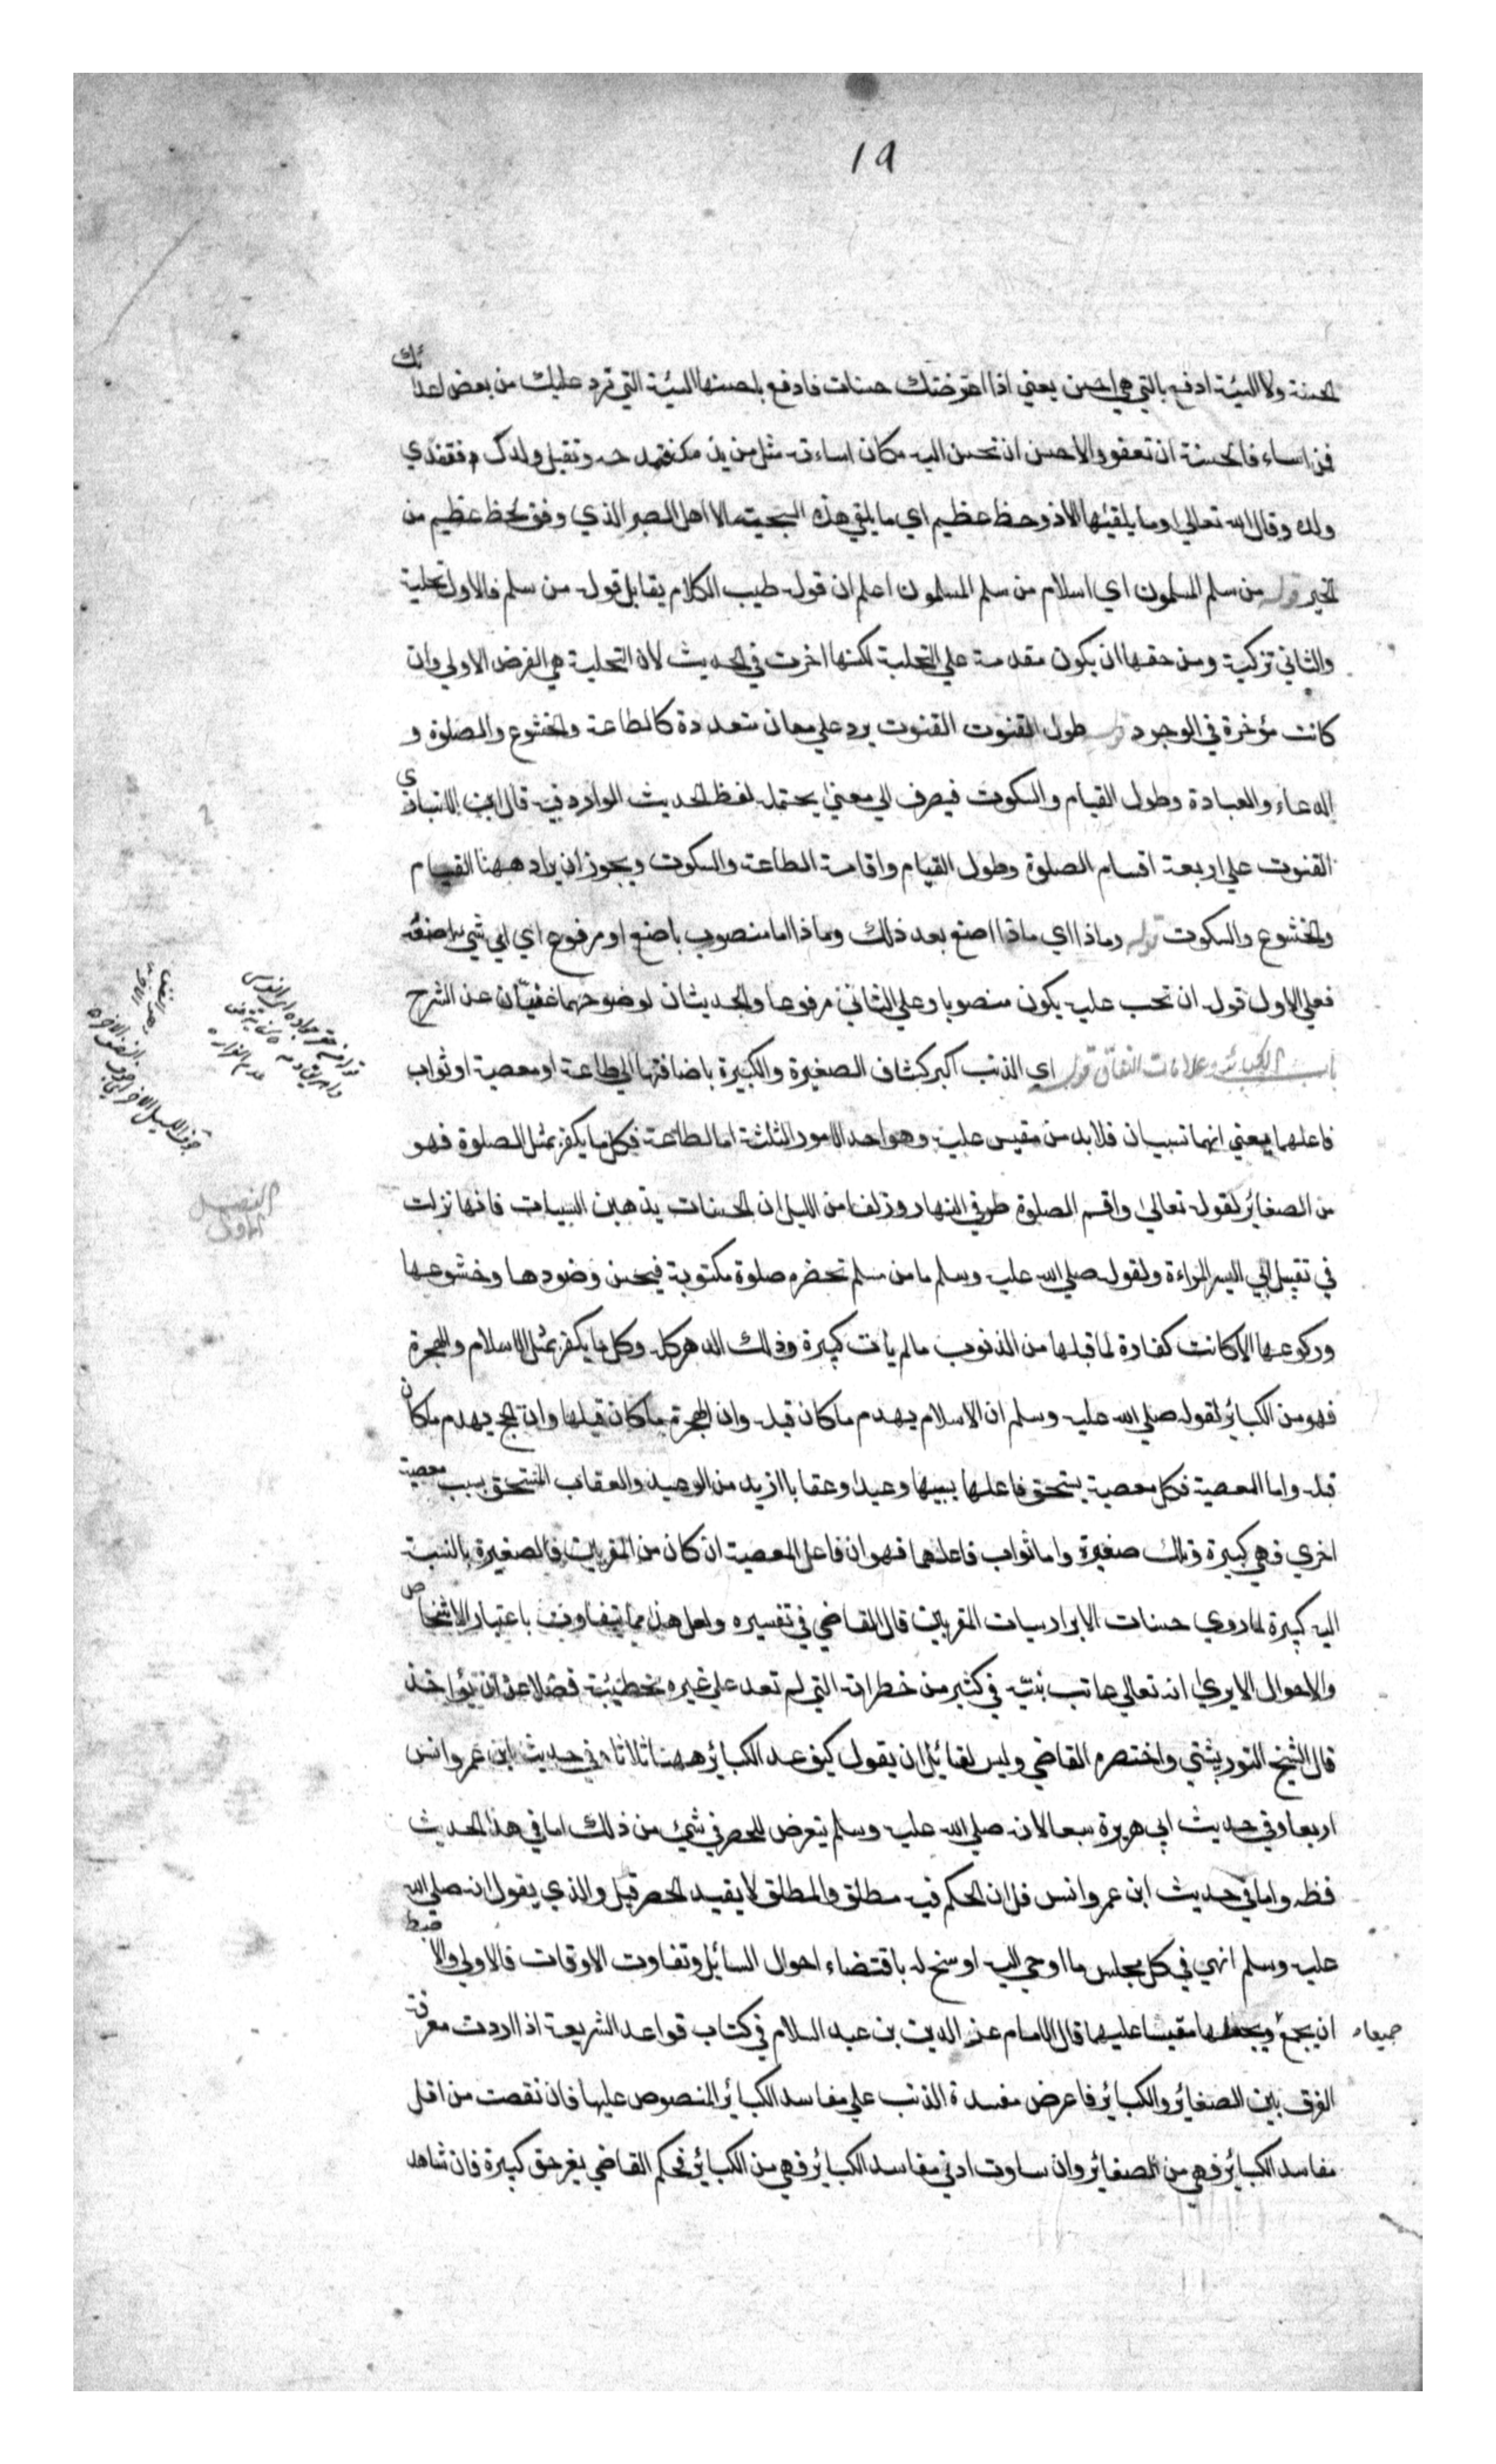 ١٩
الحسنة ولا السيئة ادفع بالتي هي احسن يعني اذا اعترضتك حسنات فادفع باحسنها السيئة التي ترد عليك من بعض اعدائك
فمن اساء فالحسنة ان تعفو والاحسن ان تحسن اليه مكان اساءته مثل من يذمك فتمدحه وتقتل ولدك فتفتدي
ولده وقال الله تعالى وما يلقيها الا ذو حظ عظيم اي ما يلقي هذه السجية الا اهل الصبر الذي وفق لحظ عظيم من
الخير قوله من سلم المسلمون اي اسلام من سلم المسلمون اعلم ان قوله طيب الكلام يقابل قوله من سلم فالاول تحلية
والثاني تزكية ومن حقها ان يكون مقدمة علي التحلية لكنها اخرت في الحديث لان التحلية هي الغرض الاولي وان
كانت مؤخرة في الوجود قوله طول القنوت القنوت يرد علي معان متعددة كالطاعة والخشوع والصلوة و
الدعاء والعبادة وطول القيام والسكوت فيصرف الي معني يحتمله لفظ الحديث الوارد فيه قال ابن الانباري
القنوت علي اربعة اقسام الصلوة وطول القيام واقامة الطاعة والسكوت ويجوز ان يراد ههنا القيام
والخشوع والسكوت قوله وماذا اي ماذا اصنع بعد ذلك وماذا اما منصوب باصنع او مرفوع اي اي شي اصنعه
فعلي الاول قوله ان تحب عليه يكون منصوبا وعلي الثاني مرفوعا والحديثان لوضوحهما غنيان عن الشرح
باب الكبائر وعلامات النفاق قوله اي الذنب اكبر كشاف الصغيرة والكبيرة باضافتها الي طاعة او معصية او ثواب
فاعلهما يعني انهما نسبيان فلابد من مقيس عليه وهو احد الامور الثلثة اما الطاعة فكل ما يكفر بمثل الصلوة فهو
من الصغائر لقوله تعالى واقم الصلوة طرفي النهار وزلفا من الليل ان الحسنات يذهبن السيات فانها نزلت
في تقبيل ابي اليسر المراءة ولقوله صلي الله عليه وسلم ما من مسلم تحضره صلوة مكتوبة فيحسن وضوءها وخشوعها
وركوعها الا كانت كفارة لما قبلها من الذنوب ما لم يأت كبيرة وذلك الدهر كله وكل ما يكفر بمثل الاسلام والهجرة
فهو من الكبائر لقوله صلي الله عليه وسلم ان الاسلام يهدم ما كان قبله وان الهجرة ما كان قبلها وان الحج يهدم ما كان
قبله واما المعصية فكل معصية يستحق فاعلها بسببها وعيدا وعقابا ازيد من الوعيد والعقاب المستحق بسبب معصية
اخري فهي كبيرة وتلك صغيرة واما ثواب فاعلهما فهو ان فاعل المعصية ان كان من المقربين فالصغيرة بالنسبة
اليه كبيرة لما روي حسنات الابرار سيات المقربين قال القاضي في تفسيره ولعل هذا مما يتفاوت باعتبار الاشخاص
والاحوال الا يري انه تعالي عاتب نبيه في كثير من خطراته التي لم تعد علي غيره بخطيئة فضلا عن ان يؤاخذ
قال الشيخ التوربشتي واختصره القاضي وليس لقائل ان يقول كيف عد الكبائر ههنا ثلاثا وفي حديث ابن عمر وانس
اربعا وفي حديث ابي هريرة سبعا لانه صلي الله عليه وسلم لم يتعرض للحصر في شئ من ذلك اما في هذا الحديث
فظ واما في حديث ابن عمر وانس فلان الحكم فيه مطلق والمطلق لا يفيد الحصر قيل والذي يقول انه صلي الله
عليه وسلم انهي في كل مجلس ما اوحي اليه او سنح له باقتضاء احوال السائل وتفاوت الاوقات فالاولي والاضبط
ان يجمع ويجعلها مقيسا عليها قال الامام عز الدين بن عبد السلام في كتاب قواعد الشريعة اذا اردت معرفة
جميعا
الفرق بين الصغائر والكبائر فاعرض مفسدة الذنب علي مفاسد الكبائر المنصوص عليها فان نقصت من اقل
مفاسد الكبائر فهي من الصغائر وان ساوت ادني مفاسد الكبائر فهي من الكبائر فحكم القاضي بغير حق كبيرة فان شاهد
الفصل
الاول